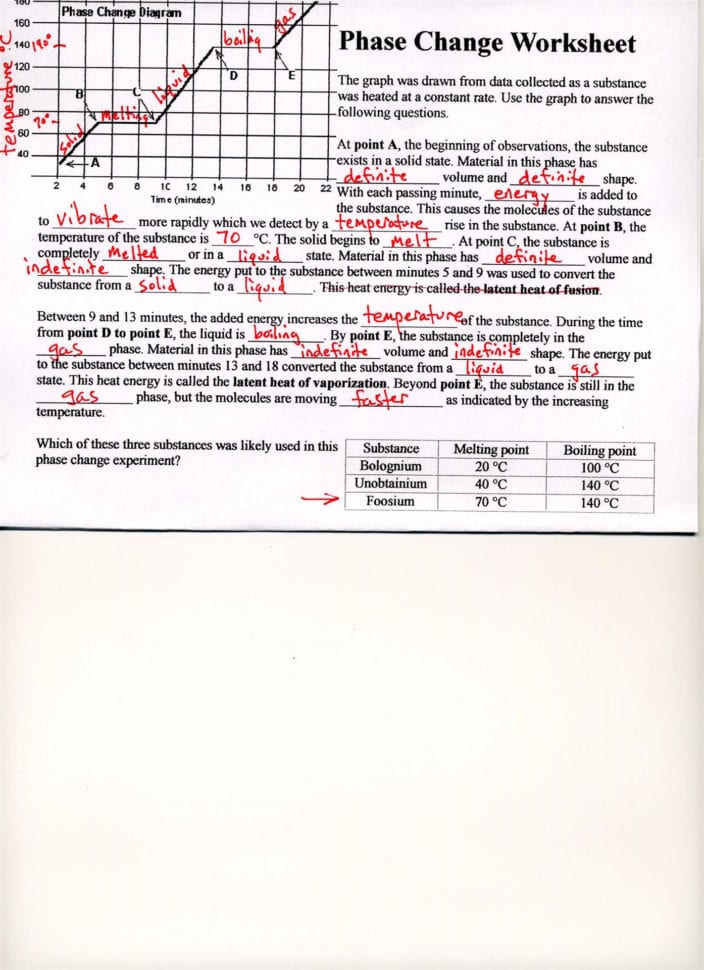 180
Phase Change Diagram
160
140 140°
120
100
80 70°
60
40
temperature °C
solid
melting
liquid
boiling
gas
A
B
C
D
E
2 4 6 8 10 12 14 16 18 20 22
Time (minutes)
Phase Change Worksheet
The graph was drawn from data collected as a substance
was heated at a constant rate. Use the graph to answer the
following questions.
At point A, the beginning of observations, the substance
exists in a solid state. Material in this phase has
definite volume and definite shape.
With each passing minute, energy is added to
the substance. This causes the molecules of the substance
to vibrate more rapidly which we detect by a temperature rise in the substance. At point B, the
temperature of the substance is 70 °C. The solid begins to melt. At point C, the substance is
completely Melted or in a liquid state. Material in this phase has definite volume and
indefinite shape. The energy put to the substance between minutes 5 and 9 was used to convert the
substance from a Solid to a liquid. This heat energy is called the latent heat of fusion.
Between 9 and 13 minutes, the added energy increases the temperature of the substance. During the time
from point D to point E, the liquid is boiling. By point E, the substance is completely in the
gas phase. Material in this phase has indefinite volume and indefinite shape. The energy put
to the substance between minutes 13 and 18 converted the substance from a liquid to a gas
state. This heat energy is called the latent heat of vaporization. Beyond point E, the substance is still in the
gas phase, but the molecules are moving faster as indicated by the increasing
temperature.
Which of these three substances was likely used in this
phase change experiment?
Substance Melting point Boiling point
Bolognium 20 °C 100 °C
Unobtainium 40 °C 140 °C
Foosium 70 °C 140 °C